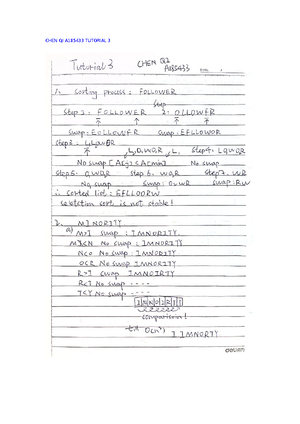 CHEN QI A185433 TUTORIAL 3
Tutorial 3 CHEN QI A185433
1. Sorting process : FOLLOWER
Step 1 : FOLLOWER Step 2: OLLOWFR
Swap: EOLLOWFR Swap: EFLLOWOR
Step 3 : LLOWOR Step 4: LQWOR
No swap [A[j] < A[min]] No swap
Step 5. OWOR Step 6. WOR Step 7. WR
No swap Swap: OWR Swap: RW
∴ Sorted list: EFLLOORW
selection sort is not stable!
2. MINORITY
a) M>I swap : IMNORITY.
M<N No swap : IMNORITY
N<O No swap IMNORITY
O<R No swap IMNORITY
R>I swap IMNOIRTY
R<T No swap
T<Y No swap
comparison!
IIMNORTY